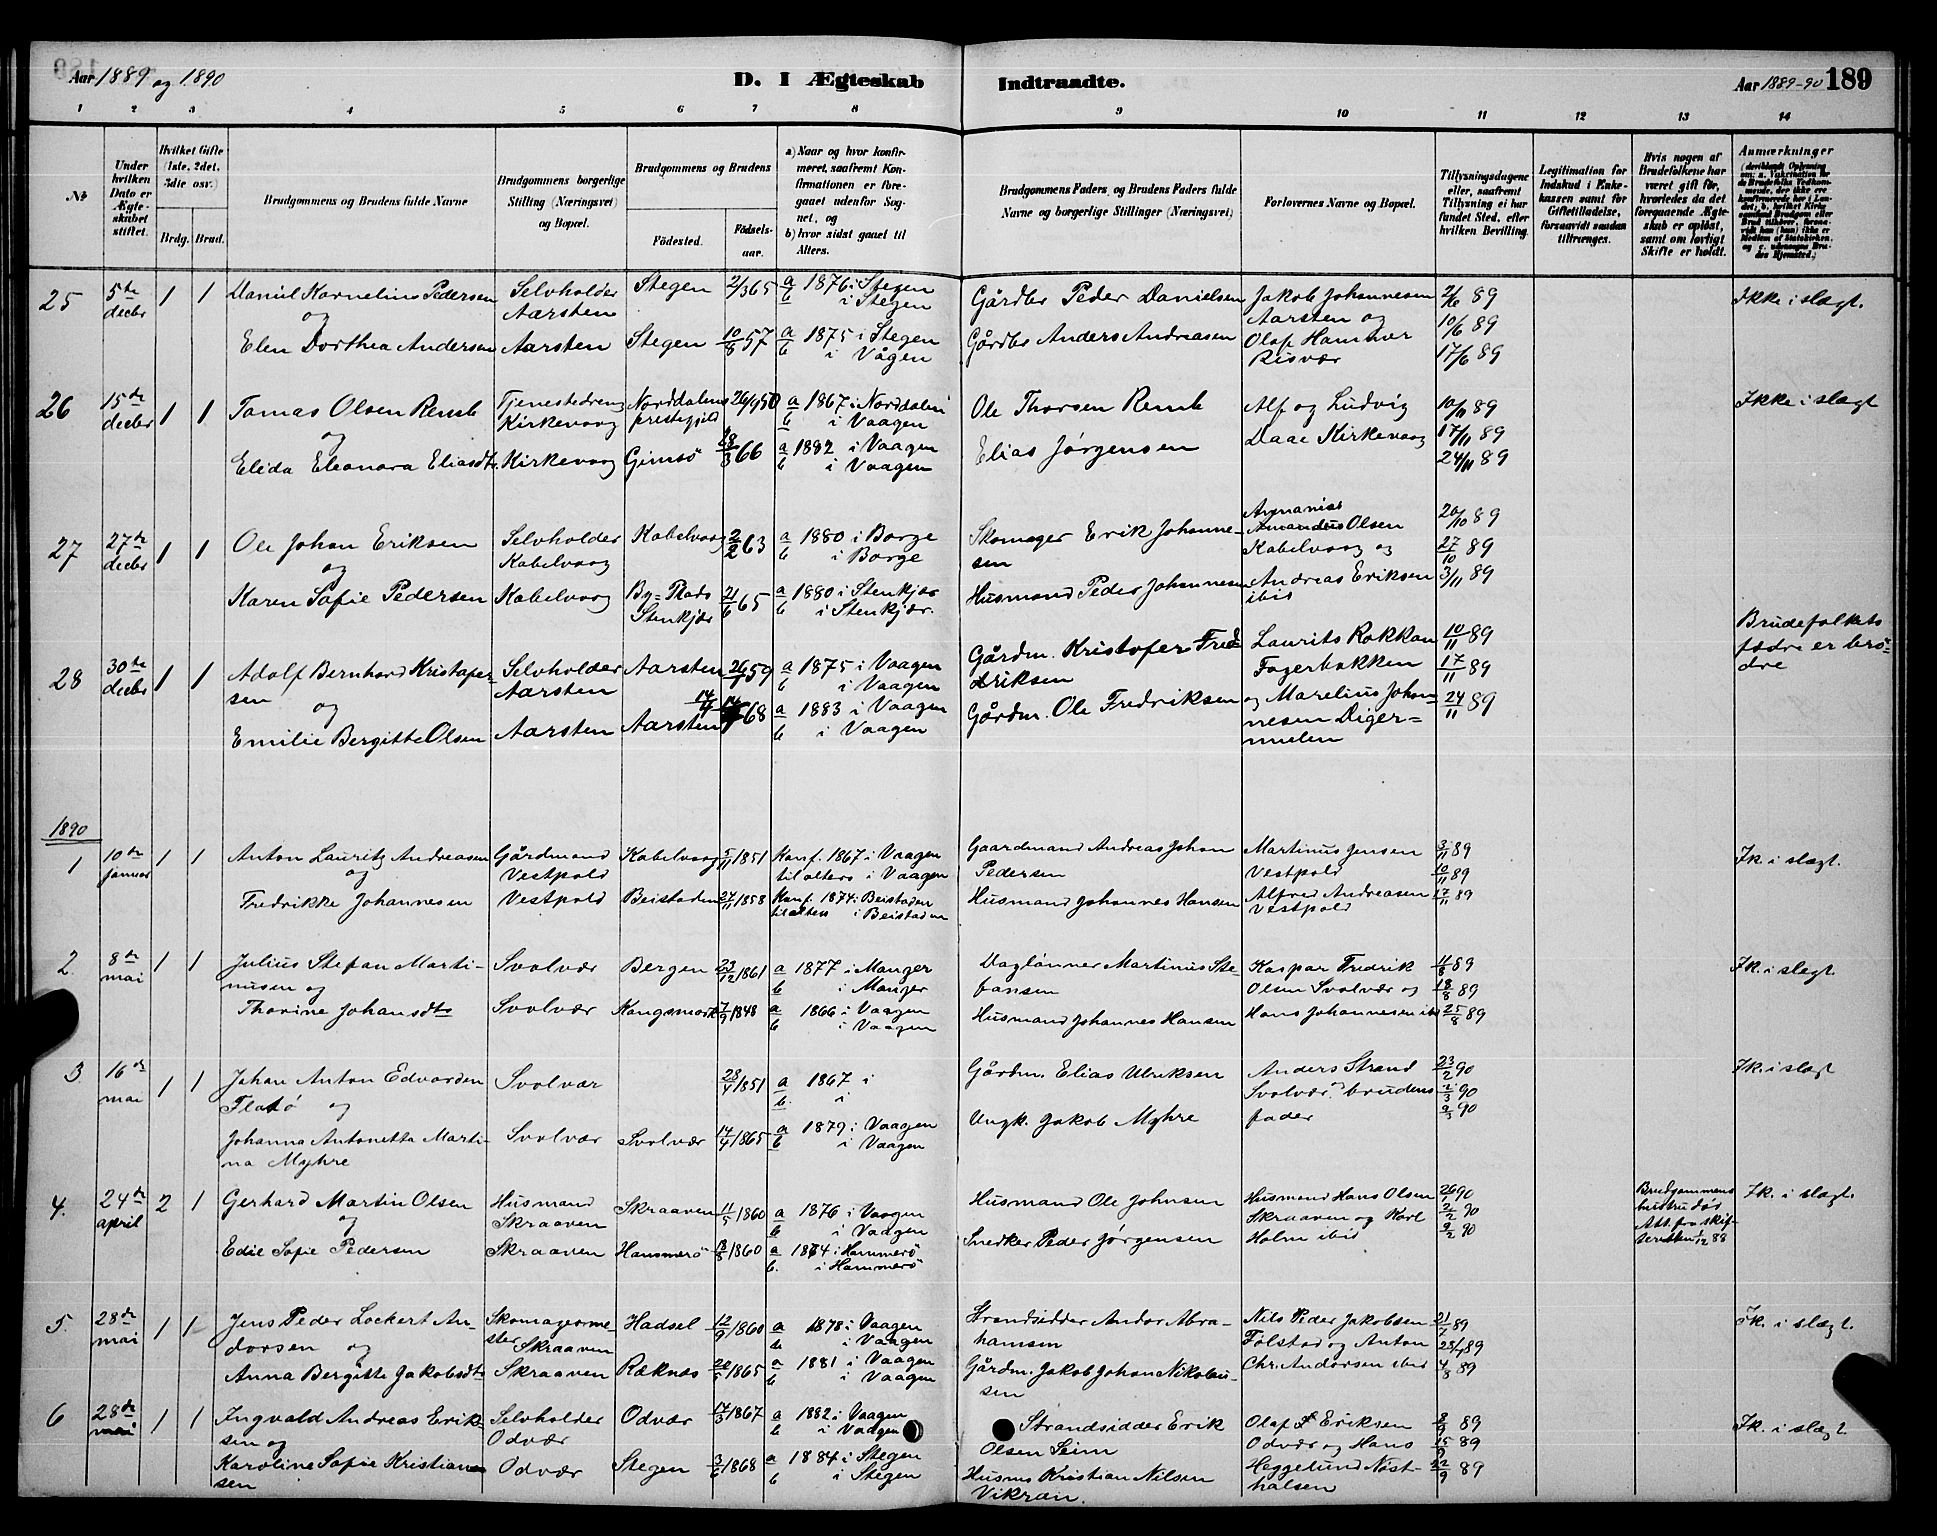 Aar 1889 og 1890
D. I Ægteskab Indtraadte.
Aar 1889-90 189
1 2 3 4 5 6 7 8 9 10 11 12 13 14
No
Under hvilken Dato er Ægteskabet stiftet.
Hvilket Gifte (1ste, 2det, 3die osv.)
Brdg. Brud.
Brudgommens og Brudens fulde Navne
Brudgommens borgerlige Stilling (Næringsvei) og Bopæl.
Brudgommens og Brudens
Fødested.
Fødselsaar.
a) Naar og hvor konfirmeret, saafremt Konfirmationen er foregaaet udenfor Sognet, og
b) hvor sidst gaaet til Alters.
Brudgommens Faders og Brudens Faders fulde Navne og borgerlige Stillinger (Næringsvei)
Forlovernes Navne og Bopæl.
Tillysningsdagene eller, saafremt Tillysning ei har fundet Sted, efter hvilken Bevilling.
Legitimation for Indskud i Enkekassen samt for Giftetilladelse, forsaavidt saadan tiltrænges.
Hvis nogen af Brudefolkene har været gift før, hvorledes da det foregaaende Ægteskab er opløst, samt om lovligt Skifte er holdt.
Anmærkninger
25 5te decbr 1 1 Daniel Kornelius Pedersen Selvholder Stegen 2/3 65 a 1876 i Stegen Gårdbr Peder Danielsen Jakob Johannesen 2/6 89 Ikke i slægt.
og Aarsten b i Stegen Aarsten og 10/6 89
Elen Dorthea Andersen Aarsten Stegen 10/8 57 a 1875 i Stegen Gårdbr Anders Andreasen Olaf Hamher 17/6 89
b i Vågen Risvær
26 15de decbr 1 1 Tomas Olsen Remb Tjenestedreng Norddalens 26/9 50 a 1867 i Norddalen Ole Thorsen Remb Alf og Ludvig 10/11 89 Ikke i slægt
og Kirkevaag prestegjeld b i Vaagen Daae Kirkevaag 17/11 89
Elida Eleonora Eliasdtr Kirkevaag Gimsö 28/3 66 a 1882 i Vaagen Elias Jørgensen 24/11 89
b i Vaagen
27 27de decbr 1 1 Ole Johan Eriksen Selvholder Kabelvaag 2/2 63 a 1880 i Borge Skomager Erik Johannesen Annanias Amandus Olsen 20/10 89
og Kabelvaag b i Borge Kabelvaag og 27/10 89
Karen Sofie Pedersen Kabelvaag By=Plads Stenkjær 21/6 65 a 1880 i Stenkjær Husmand Peder Johannesen Andreas Eriksen ibid 3/11 89
b i Stenkjær.
28 30te decbr 1 1 Adolf Bernhard Kristofersen Selvholder Aarsten 26/1 59 a 1875 i Vaagen Gårdm. Kristofer Fredriksen Laurits Rokkan 10/11 89 Brudefolkets fædre er brödre
og Aarsten b i Vaagen Fagerbakken 17/11 89
Emilie Bergitte Olsen Aarsten Aarsten 68 a 1883 i Vaagen Gårdm. Ole Fredriksen og Marelius Johannesen Digermulen 24/11 89
b i Vaagen
1890
1 10de januar 1 1 Anton Lauritz Andreasen Gårdmand Kabelvaag 5/11 1851 Konf. 1867 i Vaagen Gaardmand Andreas Johan Pedersen Martinus Jensen 3/11 89 Ik. i slægt.
og Vestpold til alters i Vaagen Vestpold 10/11 89
Fredrikke Johannesen Vestpold Beistaden 24/11 1858 Konf. 1874 i Beistaden Husmand Johannes Hansen Alfred Andreasen Vestpold 17/11 89
til alters i Beistaden
2. 8de mai 1 1 Julius Stefan Martinusen og Svolvær Bergen 23/12 1861 a 1877 i Manger Daglönner Martinus Stefansen Kaspar Fredrik 11/8 89 Ik. i slægt
b i Manger Olsen Svolvær og 18/8 89
Thorine Johansdtr Svolvær Kongsmark 7/9 1848 a 1866 i Vaagen Husmand Johannes Hansen Hans Johannesen ibid 25/8 89
b i Vaagen
3. 16de mai 1 1 Johan Anton Edvardsen Flatö og Svolvær 28/4 1851 a 1867 i Gårdm. Elias Ulriksen Anders Strand 23/2 90 Ik. i slægt
b. i Svolvær, brudens 2/3 90
Johanna Antonetta Martina Myhre Svolvær Svolvær 14/4 1865 a 1879 i Vaagen Ungk. Jakob Myhre fader 9/3 90
b i Vaagen
4. 24de april 2 1 Gerhard Martin Olsen Husmand Skraaven 11/5 1860 a 1876 i Vaagen Husmand Ole Johnsen Husmand Hans Olsen 26/1 90 Brudgommens hustru dør Att. fra skifteretten 1/12 88 Ik. i slægt.
og Skraaven b i Vaagen Skraaven og Karl 2/2 90
Edie Sofie Pedersen Skraaven Hammerö 13/8 1860 a 1874 i Hammerö Snedker Peder Jørgensen Holm ibid 9/2 90
b. i Hammerö
5. 28de mai 1 1 Jens Peder Lockert Andorsen og Skomagermester Skraaven Hadsel 12/9 1860 a 1878 i Vaagen Strandsidder Andor Abrahamsen Nils Peder Jakobsen 21/7 89 Ik. i slægt.
b. i Vaagen Fölstad og Anton 28/7 89
Anna Bergitte Jakobsdtr Skraaven Reknes 20/5 1865 a 1881 i Vaagen Gårdm. Jakob Johan Nikolaisen Chr. Andorsen ibid 4/8 89
b i Vaagen
6 28de mai 1 1 Ingvald Andreas Eriksen og Selvholder Odvær Odvær 17/3 1867 a 1882 i Vaagen Strandsidder Erik Olsen Seim Olaf Eriksen 8/9 89 Ik. i slægt.
b i Vaagen Odvær og Hans 15/9 89
Karoline Sofie Kristiansen Odvær Stegen 3/6 1868 a 1884 i Stegen Husm Kristian Nilsen Vikran. Heggelund Nösthalsen 22/9 89
b i Stegen